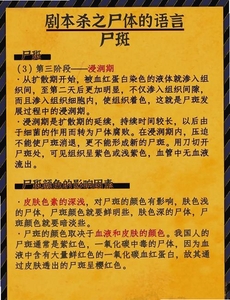 剧本杀之尸体的语言
尸斑
尸斑
（3）第三阶段——浸润期
·从扩散期开始，被血红蛋白染色的液体就渗入组
织间，至第二天后更加明显，不仅渗入组织间隙，
而且渗入组织细胞内，使组织着色，这就是尸斑发
展过程中的浸润期。
·浸润期是扩散期的延续，持续时间较长，以后由
于细菌的作用而转为尸体腐败。在浸润期内，压迫
不能使尸斑消退，更不能形成新的尸斑。用刀切开
尸斑处，可见组织呈紫色或浅紫色，血管中无血液
流出。
尸斑颜色的影响因素
·皮肤色素的深浅，对尸斑的颜色有影响，肤色浅
的尸体，尸斑颜色就要鲜明些，肤色深的尸体，尸
斑颜色就要暗淡些。
·尸斑的颜色取决于血液和皮肤的颜色。我国人的
尸斑通常是紫红色，一氧化碳中毒的尸体，因为血
液中含有大量鲜红色的一氧化碳血红蛋白，故其通
过皮肤透出的尸斑呈樱红色。